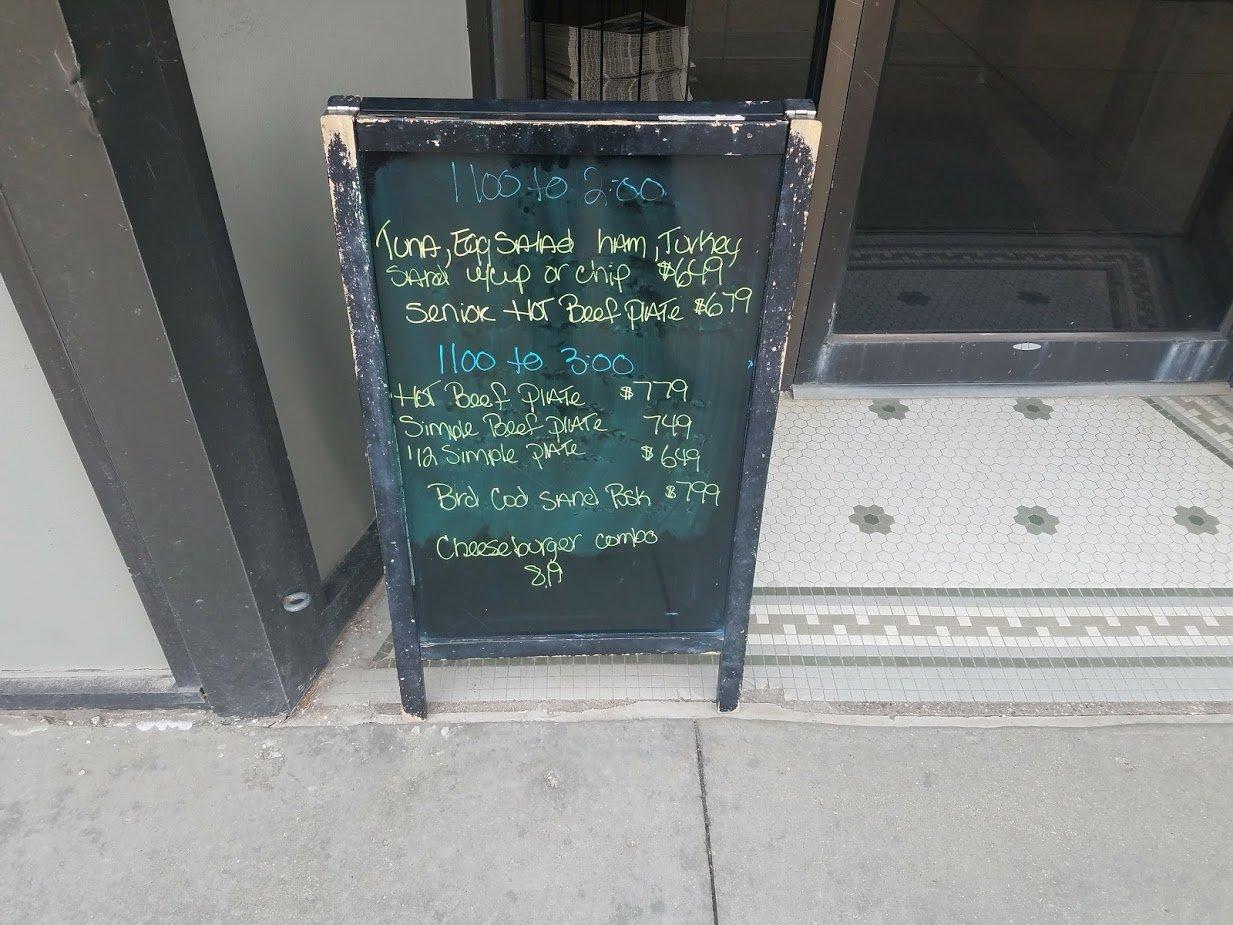 1100 to 2:00
Tuna, Egg Salad ham, Turkey
Sand w/cup or chip $649
Senior Hot Beef Plate $679
1100 to 3:00
Hot Beef Plate $779
Simple Beef Plate 749
1/2 Simple Plate $649
Brd Cod Sand Bsk $799
Cheeseburger combo
819